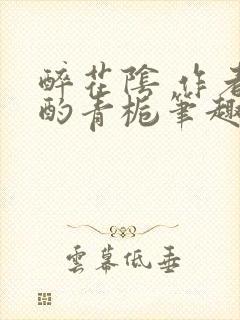 醉花陰 作者
酌青梔筆趣
雲幕低垂